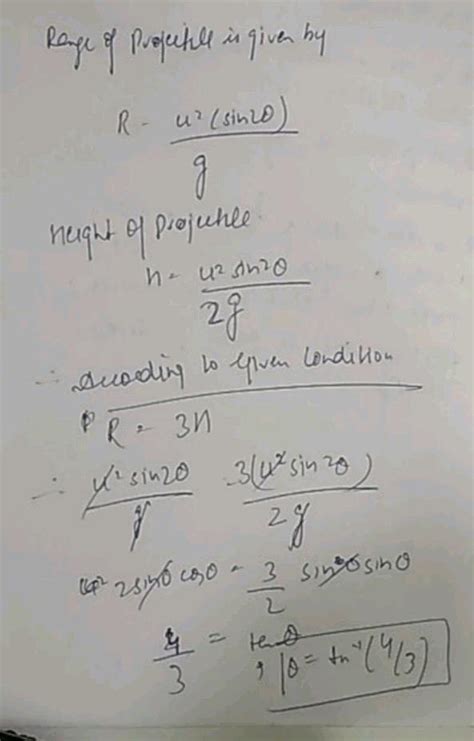 Range of Projectile is given by
R = u²(sin2θ) / g
Height of Projectile
h = u² sin²θ / 2g
∴ According to Given Condition
R = 3H
∴ u² sin2θ / g = 3(u² sin²θ) / 2g
2sinθ cosθ = 3/2 sinθ sinθ
4/3 = tanθ , θ = tn⁻¹(4/3)